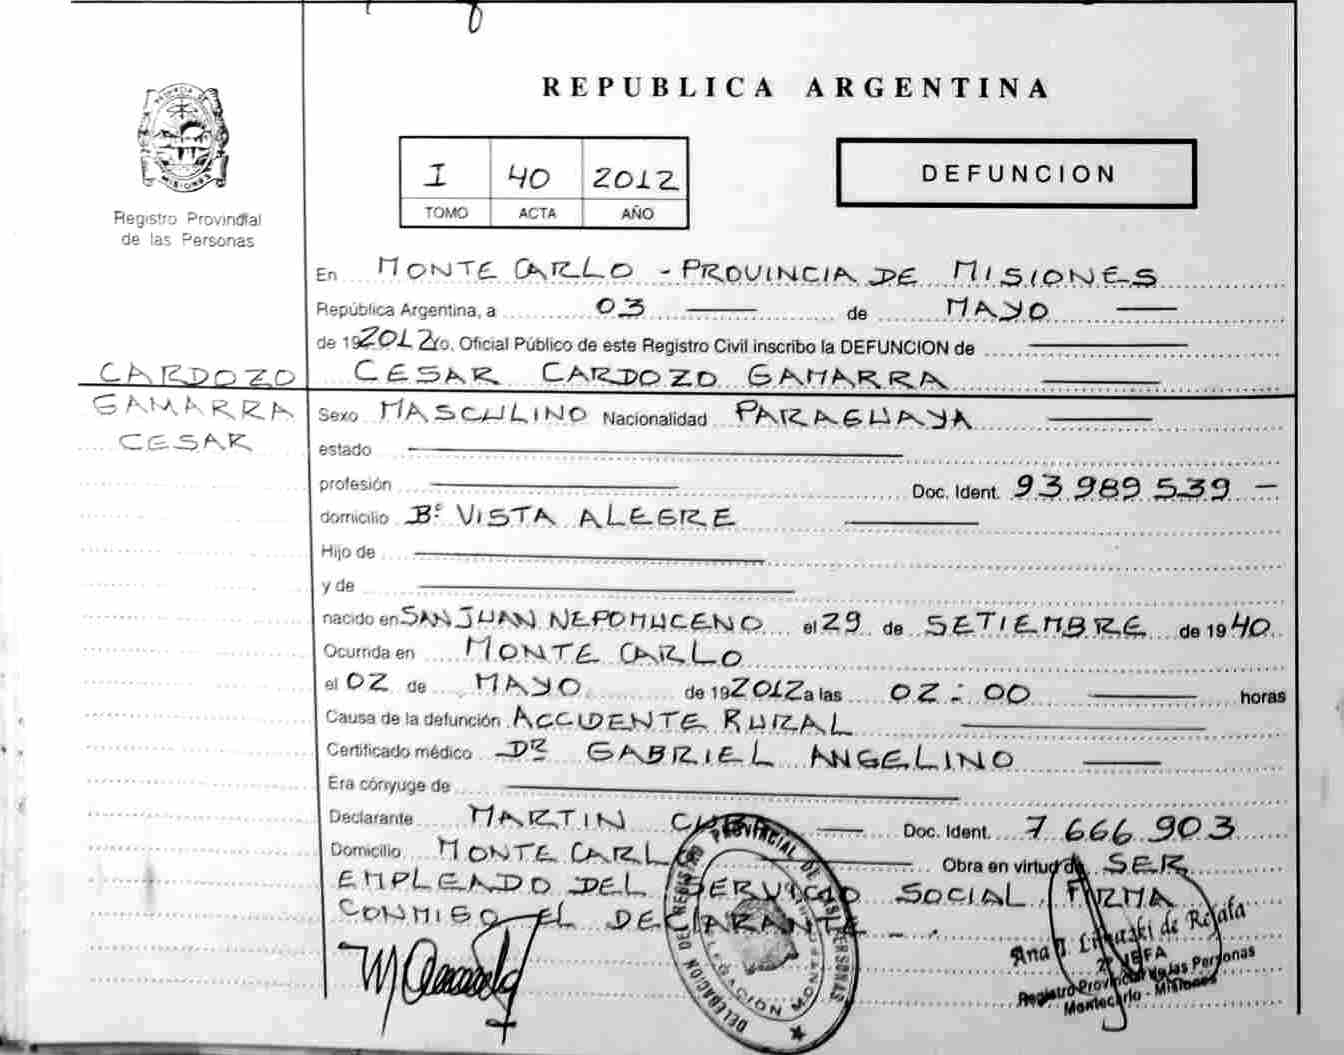 REPUBLICA ARGENTINA
PROVINCIA DE
MISIONES
Registro Provincial
de las Personas
I 40 2012
TOMO ACTA AÑO
DEFUNCION
En MONTE CARLO - PROVINCIA DE MISIONES
República Argentina, a 03 de MAYO
de 19 2012 Yo, Oficial Público de este Registro Civil inscribo la DEFUNCION de
CESAR CARDOZO GAMARRA
CARDOZO
GAMARRA
CESAR
Sexo MASCULINO Nacionalidad PARAGUAYA
estado
profesión Doc. Ident. 93 989 539 -
domicilio Bº VISTA ALEGRE
Hijo de
y de
nacido en SAN JUAN NEPOMUCENO el 29 de SETIEMBRE de 19 40
Ocurrida en MONTE CARLO
el 02 de MAYO de 19 2012 a las 02:00 horas
Causa de la defunción ACCIDENTE RURAL
Certificado médico DR GABRIEL ANGELINO
Era cónyuge de
Declarante MARTIN Doc. Ident. 7 666 903
Domicilio MONTE CARLO Obra en virtud de SER
EMPLEADO DEL SERVICIO SOCIAL FIRMA
CONMIGO EL DECLARANTE - .
DELEGACION DEL REGISTRO PROVINCIAL DE LAS PERSONAS
Ana de
2º JEFA
Registro Provincial de las Personas
Montecarlo - Misiones